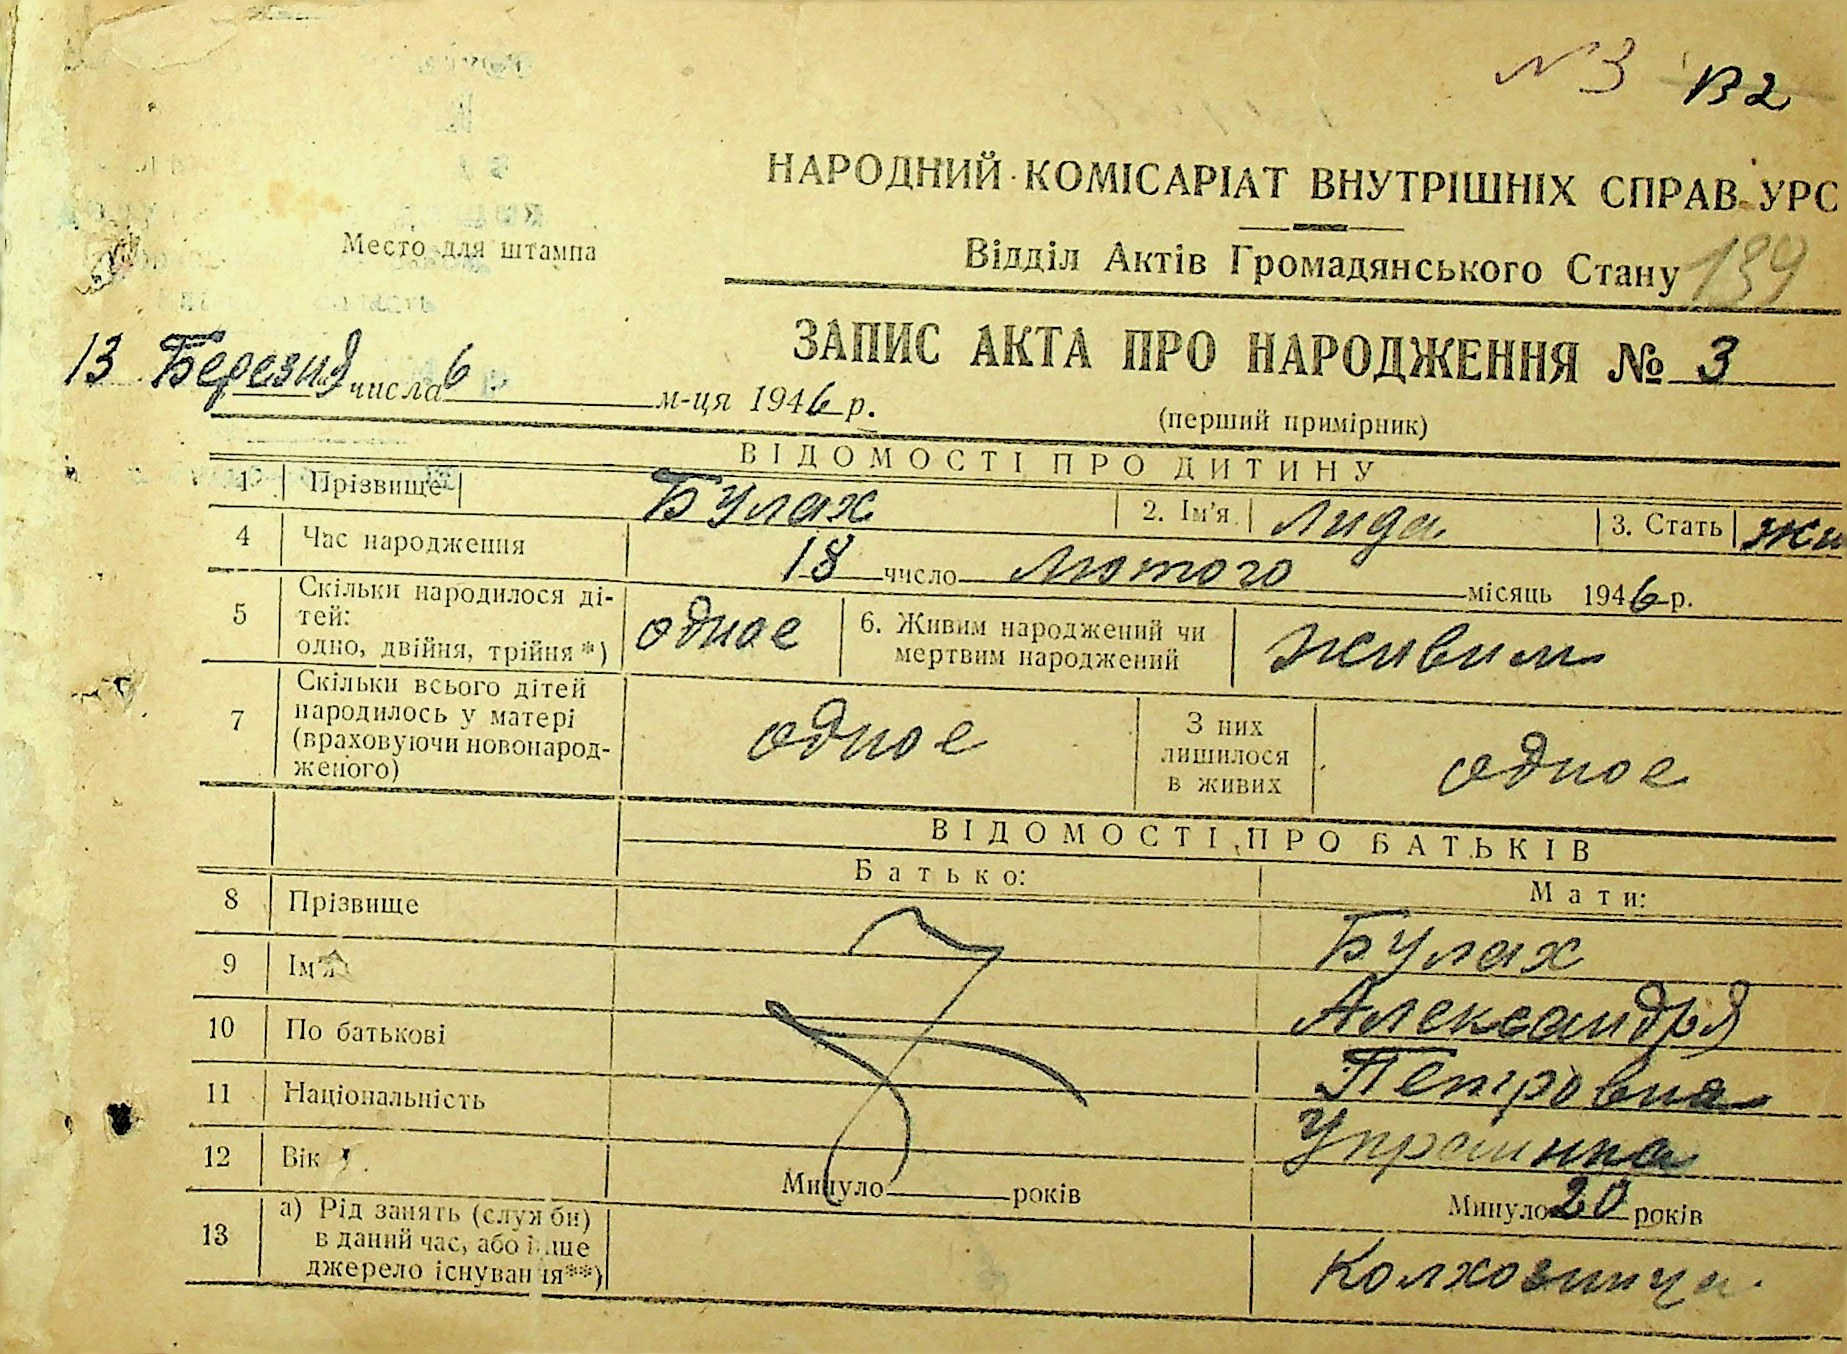 N 3 В2
НАРОДНИЙ КОМІСАРІАТ ВНУТРІШНІХ СПРАВ УРС
Место для штампа
Відділ Актів Громадянського Стану 139
ЗАПИС АКТА ПРО НАРОДЖЕННЯ № 3
13 Березня числа 6 м-ця 1946 р.
(перший примірник)
ВІДОМОСТІ ПРО ДИТИНУ
1 Прізвище Булах 2. Ім'я Лида 3. Стать жи
4 Час народження 18 число лютого місяць 1946 р.
5 Скільки народилося ді-
тей:
одно, двійня, трійня*) одное 6. Живим народжений чи
мертвим народжений живим
7 Скільки всього дітей
народилось у матері
(враховуючи новонарод-
женого) одное З них
лишилося
в живих одное
ВІДОМОСТІ ПРО БАТЬКІВ
Батько: Мати:
8 Прізвище Булах
9 Ім'я Александря
10 По батькові Петровна
11 Національність Украинка
12 Вік Минуло років Минуло 20 років
13 а) Рід занять (служби)
в даний час, або інше
джерело існування**) Колхозница.